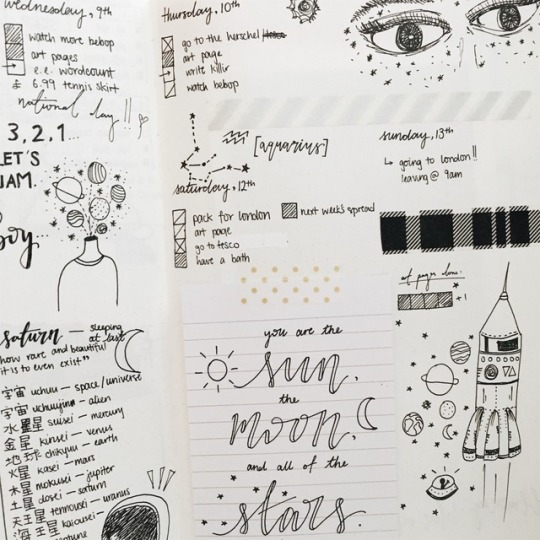 wednesday, 9th
watch more bebop
art pages
e.e. wordcount
£ 6.99 tennis skirt
national day!!
3, 2, 1...
LET'S
JAM.
boy
saturn — sleeping
at last
"how rare and beautiful
it is to even exist"
宇宙 uchuu — space/universe
宇宙星 uchuujin — alien
水星 suisei — mercury
金星 kinsei — venus
地球 chikyuu — earth
火星 kasei — mars
木星 mokusei — jupiter
土星 dosei — saturn
天王星 tennousei — uranus
海王星 kaiousei —
neptune
thursday, 10th
go to the herschel
art page
write killir
watch bebop
[aquarius]
saturday, 12th
pack for london
art page
go to tesco
have a bath
next week's spread
sunday, 13th
↳ going to london!!
leaving @ 9am
art pages done:
+1
you are the
sun.
the
moon.
and all of the
stars.